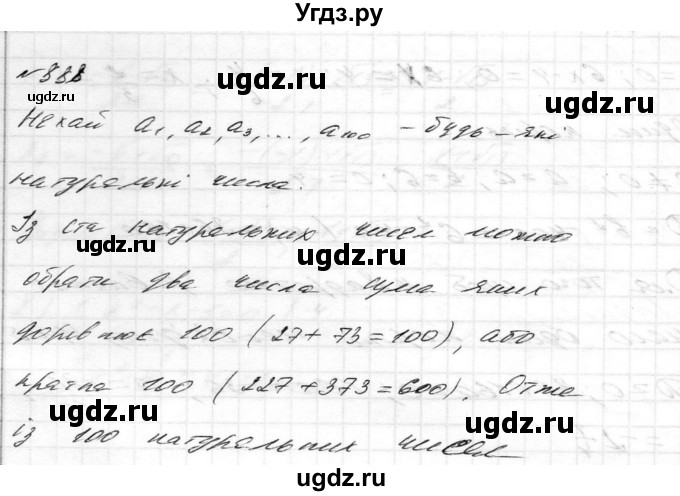 Угдз.ру
№888
Нехай a₁, a₂, a₃, ..., a₁₀₀ – будь-які
натуральні числа.
Із ста натуральних чисел можно
обрати два числа сума яких
дорівнює 100 (27+73=100), або
кратна 100 (227+373=600). Отже
із 100 натуральних чисел
ugdz.ru
ugdz.ru
ugdz.ru
ugdz.ru
ugdz.ru
ugdz.ru
ugdz.ru
ugdz.ru
ugdz.ru
ugdz.ru